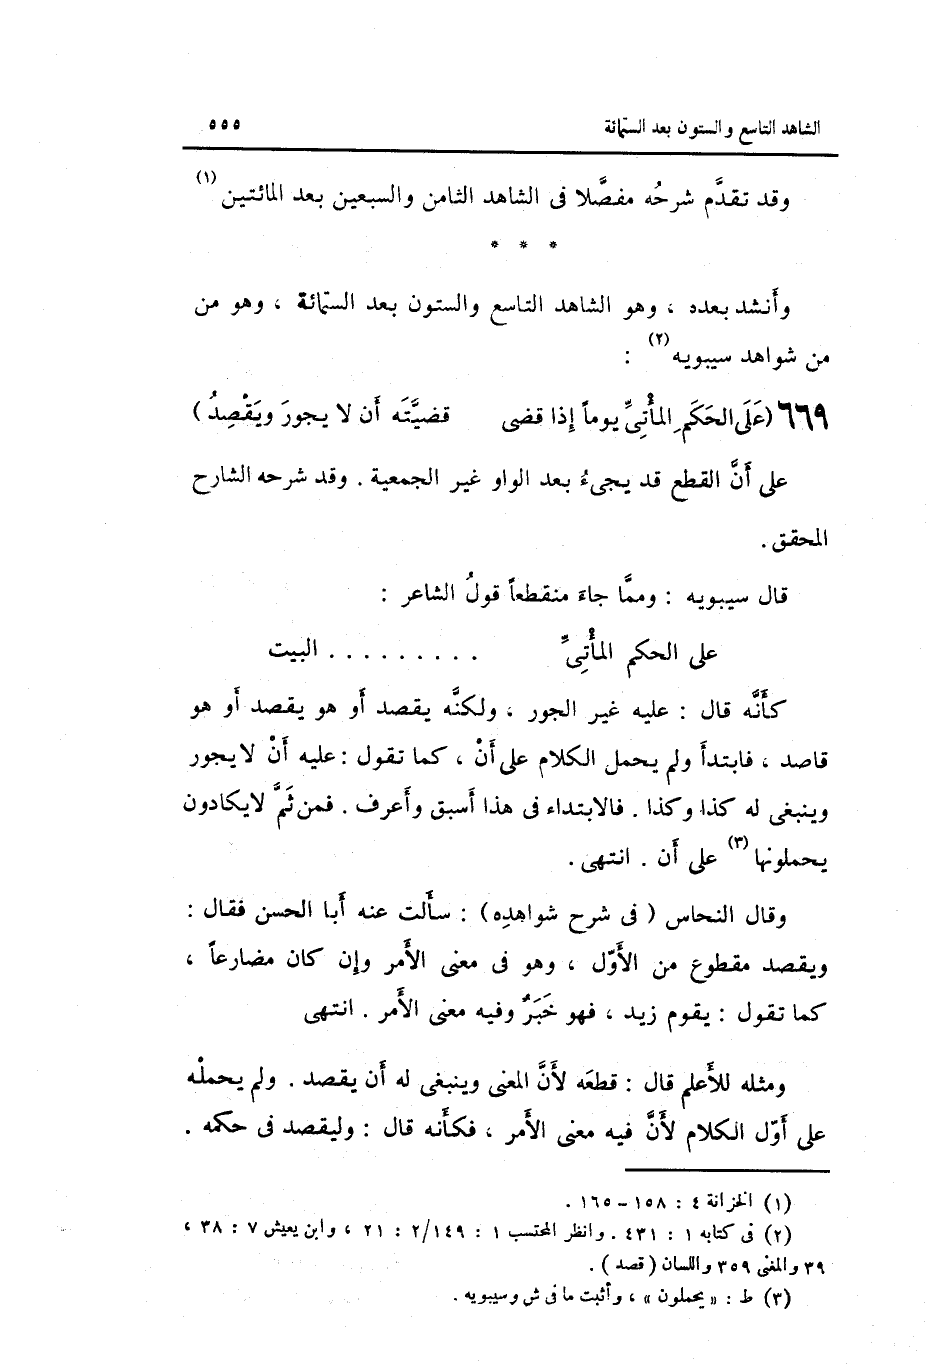 الشاهد التاسع والستون بعد الستمائة ٥٥٥
وقد تقدَّم شرحُه مفصَّلا فى الشاهد الثامن والسبعين بعد المائتين (١)
* * *
وأَنشد بعده ، وهو الشاهد التاسع والستون بعد الستمائة ، وهو من
من شواهد سيبويه (٢) :
٦٦٩ (عَلَى الحَكَمِ المأْتِىِّ يوماً إِذا قضى قضيَّتَه أَن لا يجورَ ويَقْصِدُ)
على أَنَّ القطع قد يجىءُ بعد الواو غير الجمعية . وقد شرحه الشارح
المحقق .
قال سيبويه : وممَّا جاءَ منقطعاً قولُ الشاعر :
على الحكم المأْتِىِّ . . . . . . . . . البيت
كأَنَّه قال : عليه غير الجور ، ولكنَّه يقصد أَو هو يقصد أَو هو
قاصد ، فابتدأَ ولم يحمل الكلام على أَنْ ، كما تقول : عليه أَنْ لا يجور
وينبغى له كذا وكذا . فالابتداء فى هذا أَسبق وأَعرف . فمن ثَمَّ لا يكادون
يحملونها (٣) على أَن . انتهى .
وقال النحاس ( فى شرح شواهدِه ) : سأَلت عنه أَبا الحسن فقال :
ويقصد مقطوع من الأَوّل ، وهو فى معنى الأَمر وإن كان مضارعاً ،
كما تقول : يقوم زيد ، فهو خَبَرٌ وفيه معنى الأَمر . انتهى
ومثله للأَعلم قال : قطعَه لأَنَّ المعنى وينبغى له أَن يقصد . ولم يحملْه
على أَوّل الكلام لأَنَّ فيه معنى الأَمر ، فكأَنه قال : وليقصد فى حكمه .
(١) الخزانة ٤ : ١٥٨ – ١٦٥ .
(٢) فى كتابه ١ : ٤٣١ . وانظر المحتسب ١ : ١٤٩/٢ : ٢١ ، وابن يعيش ٧ : ٣٨ ،
٣٩ والمغنى ٣٥٩ واللسان ( قصد ) .
(٣) ط : « يحملون » ، وأثبت ما فى ش وسيبويه .